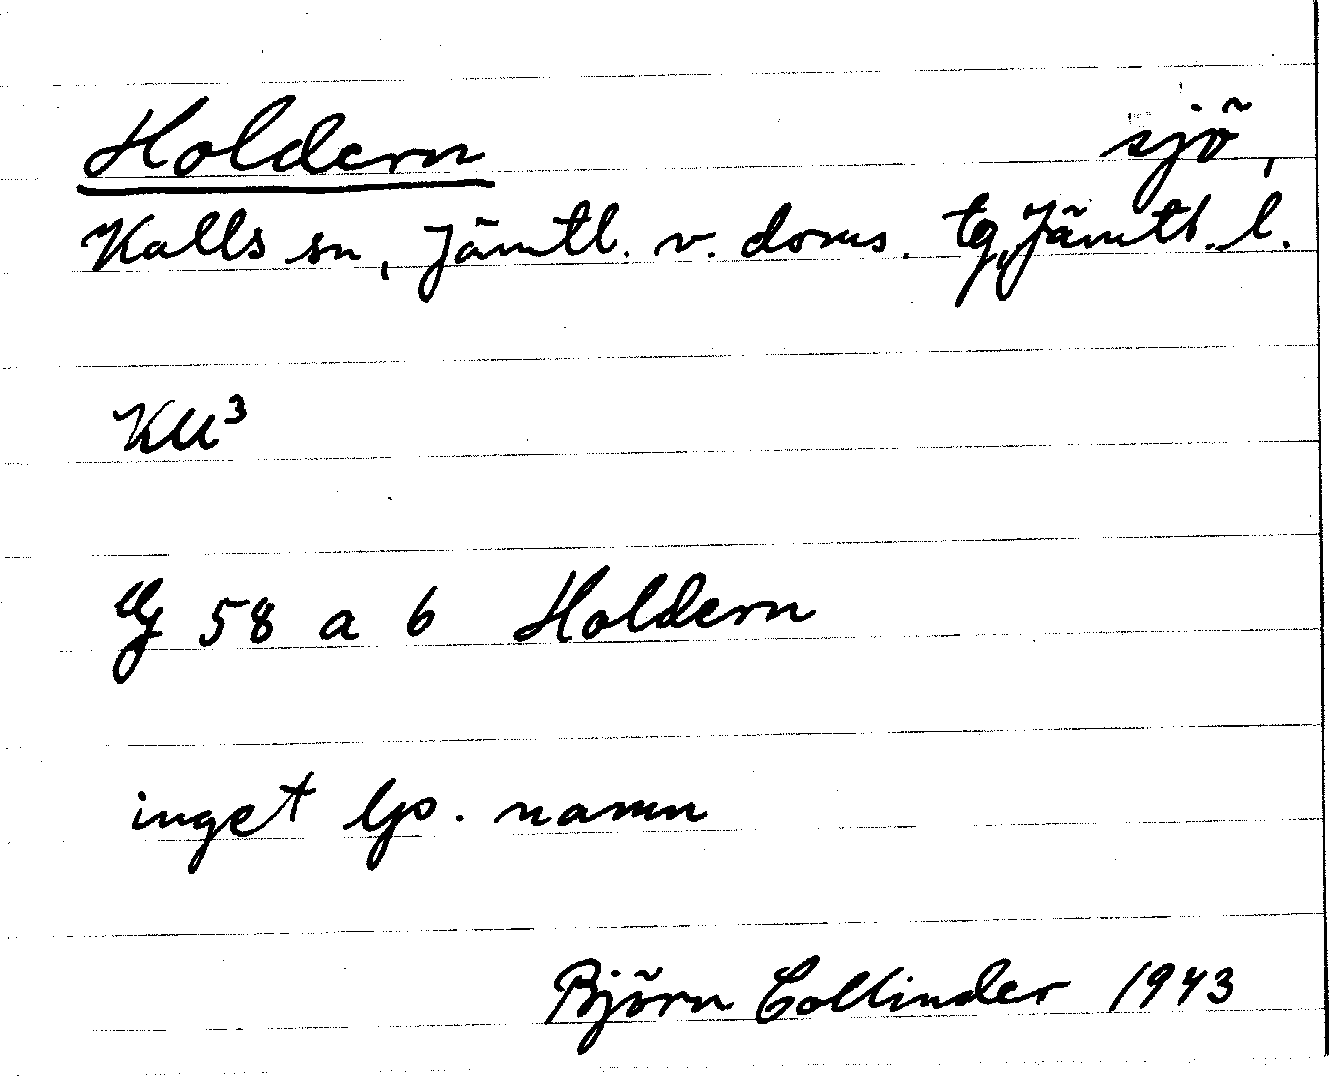 Holdern sjö,
Kalls sn, Jämtl. v. doms. tg, Jämtl. l.
KU³
G 58 a 6 Holdern
inget lp. namn
Björn Collinder 1943